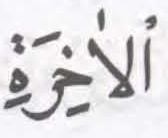 ٱلاٰخِرَةِ